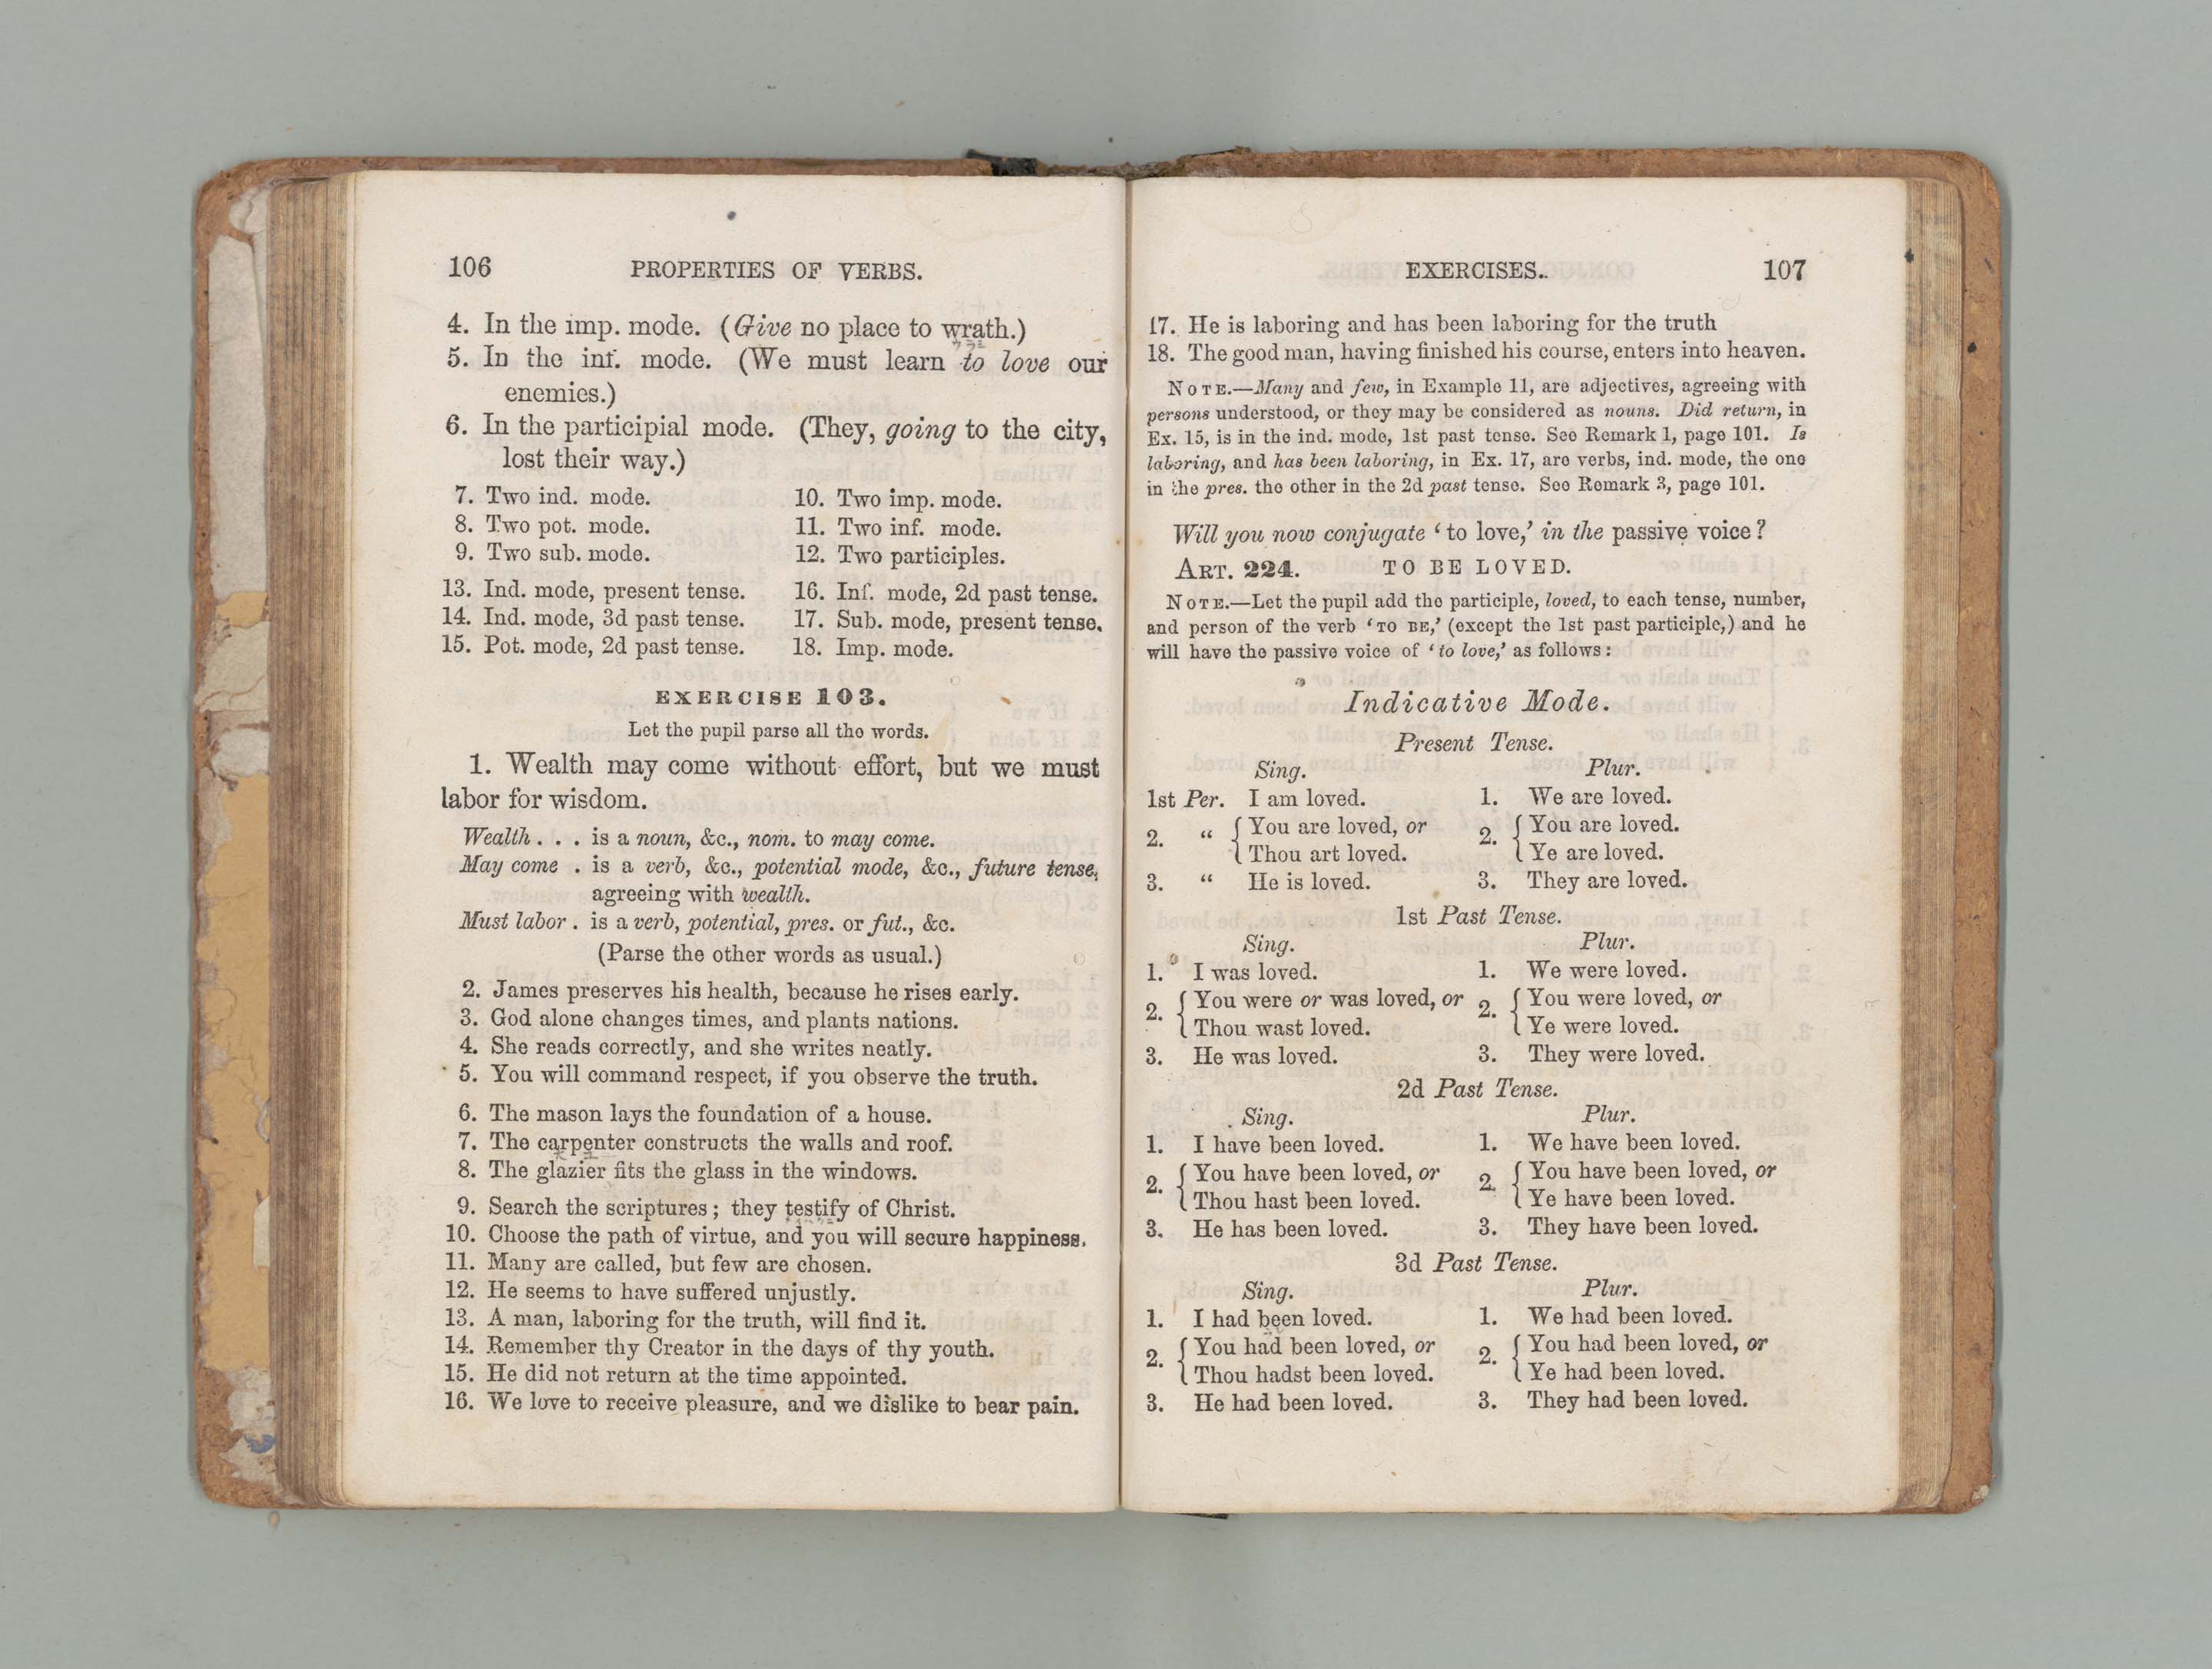 106 PROPERTIES OF VERBS.
4. In the imp. mode. (Give no place to wrath.)
5. In the inf. mode. (We must learn to love our
enemies.)
6. In the participial mode. (They, going to the city,
lost their way.)
7. Two ind. mode. 10. Two imp. mode.
8. Two pot. mode. 11. Two inf. mode.
9. Two sub. mode. 12. Two participles.
13. Ind. mode, present tense. 16. Inf. mode, 2d past tense.
14. Ind. mode, 3d past tense. 17. Sub. mode, present tense.
15. Pot. mode, 2d past tense. 18. Imp. mode.
EXERCISE 103.
Let the pupil parse all the words.
1. Wealth may come without effort, but we must
labor for wisdom.
Wealth . . . is a noun, &c., nom. to may come.
May come . is a verb, &c., potential mode, &c., future tense,
agreeing with wealth.
Must labor . is a verb, potential, pres. or fut., &c.
(Parse the other words as usual.)
2. James preserves his health, because he rises early.
3. God alone changes times, and plants nations.
4. She reads correctly, and she writes neatly.
5. You will command respect, if you observe the truth.
6. The mason lays the foundation of a house.
7. The carpenter constructs the walls and roof.
8. The glazier fits the glass in the windows.
9. Search the scriptures; they testify of Christ.
10. Choose the path of virtue, and you will secure happiness.
11. Many are called, but few are chosen.
12. He seems to have suffered unjustly.
13. A man, laboring for the truth, will find it.
14. Remember thy Creator in the days of thy youth.
15. He did not return at the time appointed.
16. We love to receive pleasure, and we dislike to bear pain.
EXERCISES. 107
17. He is laboring and has been laboring for the truth
18. The good man, having finished his course, enters into heaven.
NOTE.—Many and few, in Example 11, are adjectives, agreeing with
persons understood, or they may be considered as nouns. Did return, in
Ex. 15, is in the ind. mode, 1st past tense. See Remark 1, page 101. Is
laboring, and has been laboring, in Ex. 17, are verbs, ind. mode, the one
in the pres. the other in the 2d past tense. See Remark 3, page 101.
Will you now conjugate ‘to love,’ in the passive voice?
ART. 224. TO BE LOVED.
NOTE.—Let the pupil add the participle, loved, to each tense, number,
and person of the verb ‘TO BE,’ (except the 1st past participle,) and he
will have the passive voice of ‘to love,’ as follows:
Indicative Mode.
Present Tense.
Sing. Plur.
1st Per. I am loved. 1. We are loved.
2. “ { You are loved, or 2. { You are loved.
Thou art loved. Ye are loved.
3. “ He is loved. 3. They are loved.
1st Past Tense.
Sing. Plur.
1. I was loved. 1. We were loved.
2. { You were or was loved, or 2. { You were loved, or
Thou wast loved. Ye were loved.
3. He was loved. 3. They were loved.
2d Past Tense.
Sing. Plur.
1. I have been loved. 1. We have been loved.
2. { You have been loved, or 2. { You have been loved, or
Thou hast been loved. Ye have been loved.
3. He has been loved. 3. They have been loved.
3d Past Tense.
Sing. Plur.
1. I had been loved. 1. We had been loved.
2. { You had been loved, or 2. { You had been loved, or
Thou hadst been loved. Ye had been loved.
3. He had been loved. 3. They had been loved.